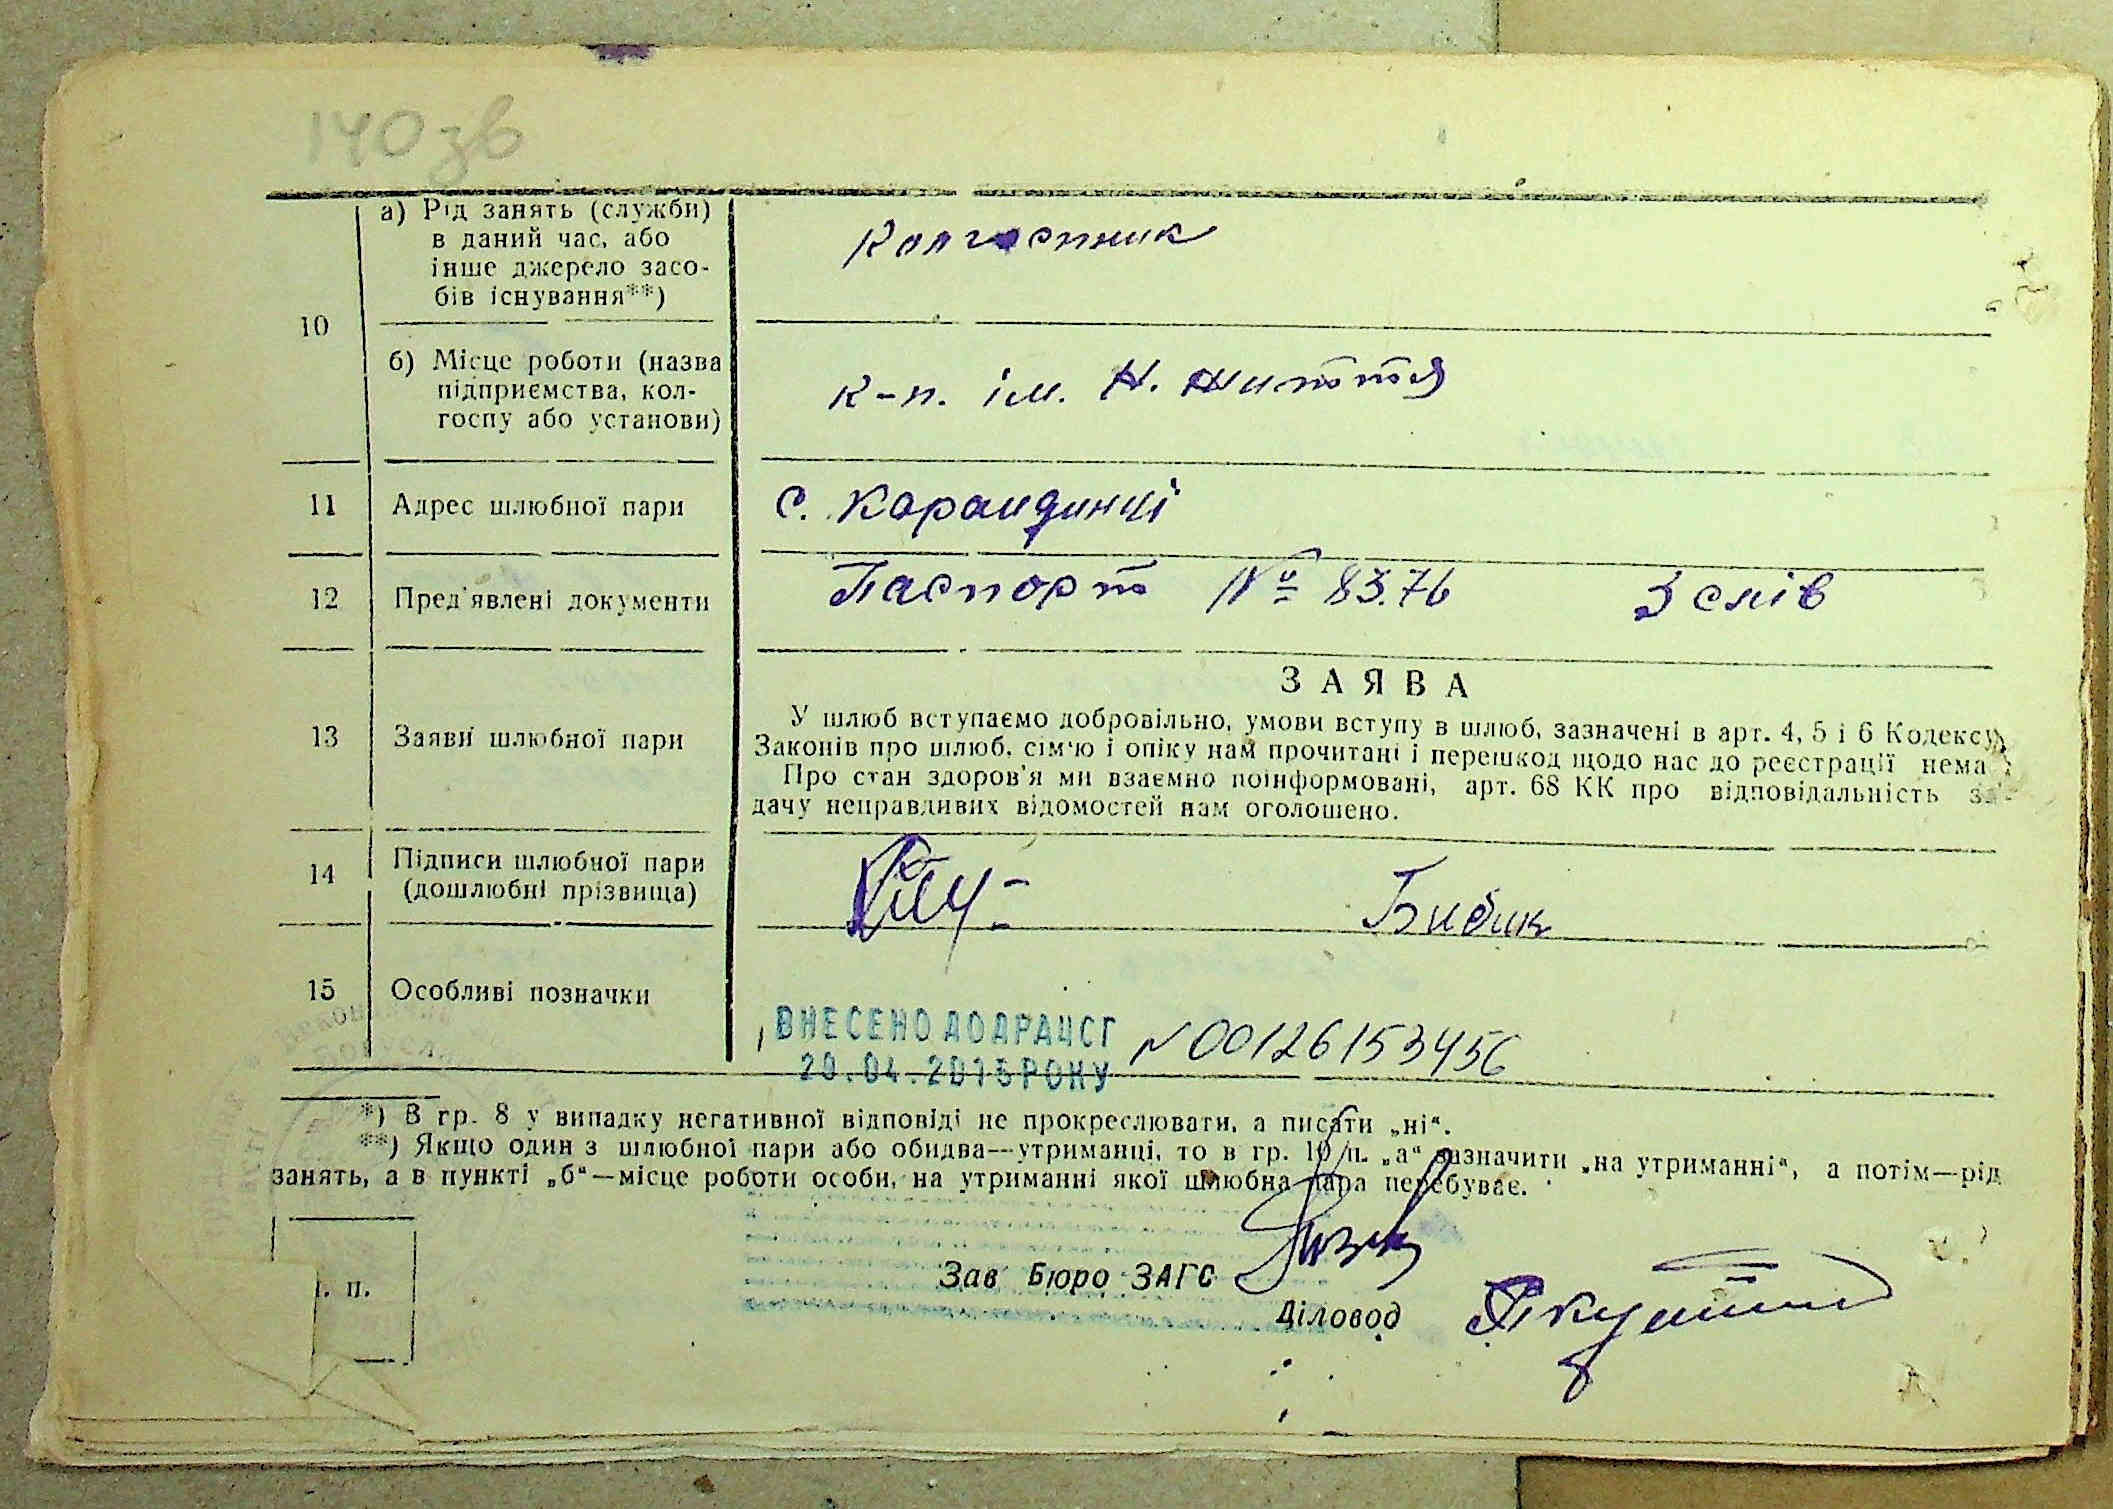 140 зв
а) Рід занять (служби)
в даний час, або
інше джерело засо-
бів існування**)
Колгоспник
10
б) Місце роботи (назва
підприємства, кол-
госпу або установи)
к-п. ім. Н. Життя
11 Адрес шлюбної пари с.
12 Пред'явлені документи Паспорт № 8376 З слів
ЗАЯВА
13 Заяви шлюбної пари
У шлюб вступаємо добровільно, умови вступу в шлюб, зазначені в арт. 4, 5 і 6 Кодексу
Законів про шлюб, сім'ю і опіку нам прочитані і перешкод щодо нас до реєстрації нема
Про стан здоров'я ми взаємно поінформовані, арт. 68 КК про відповідальність за
дачу неправдивих відомостей нам оголошено.
14 Підписи шлюбної пари
(дошлюбні прізвища)
Бибик
15 Особливі позначки
ВНЕСЕНО ДО ДРАЦСГ N 00126153456
20.04.2015 РОКУ
*) В гр. 8 у випадку негативної відповіді не прокреслювати, а писати „ні“.
**) Якщо один з шлюбної пари або обидва—утриманці, то в гр. 10 п. „а“ зазначити „на утриманні“, а потім—рід
занять, а в пункті „б“—місце роботи особи, на утриманні якої шлюбна пара перебуває.
Зав Бюро ЗАГС
п.
Діловод